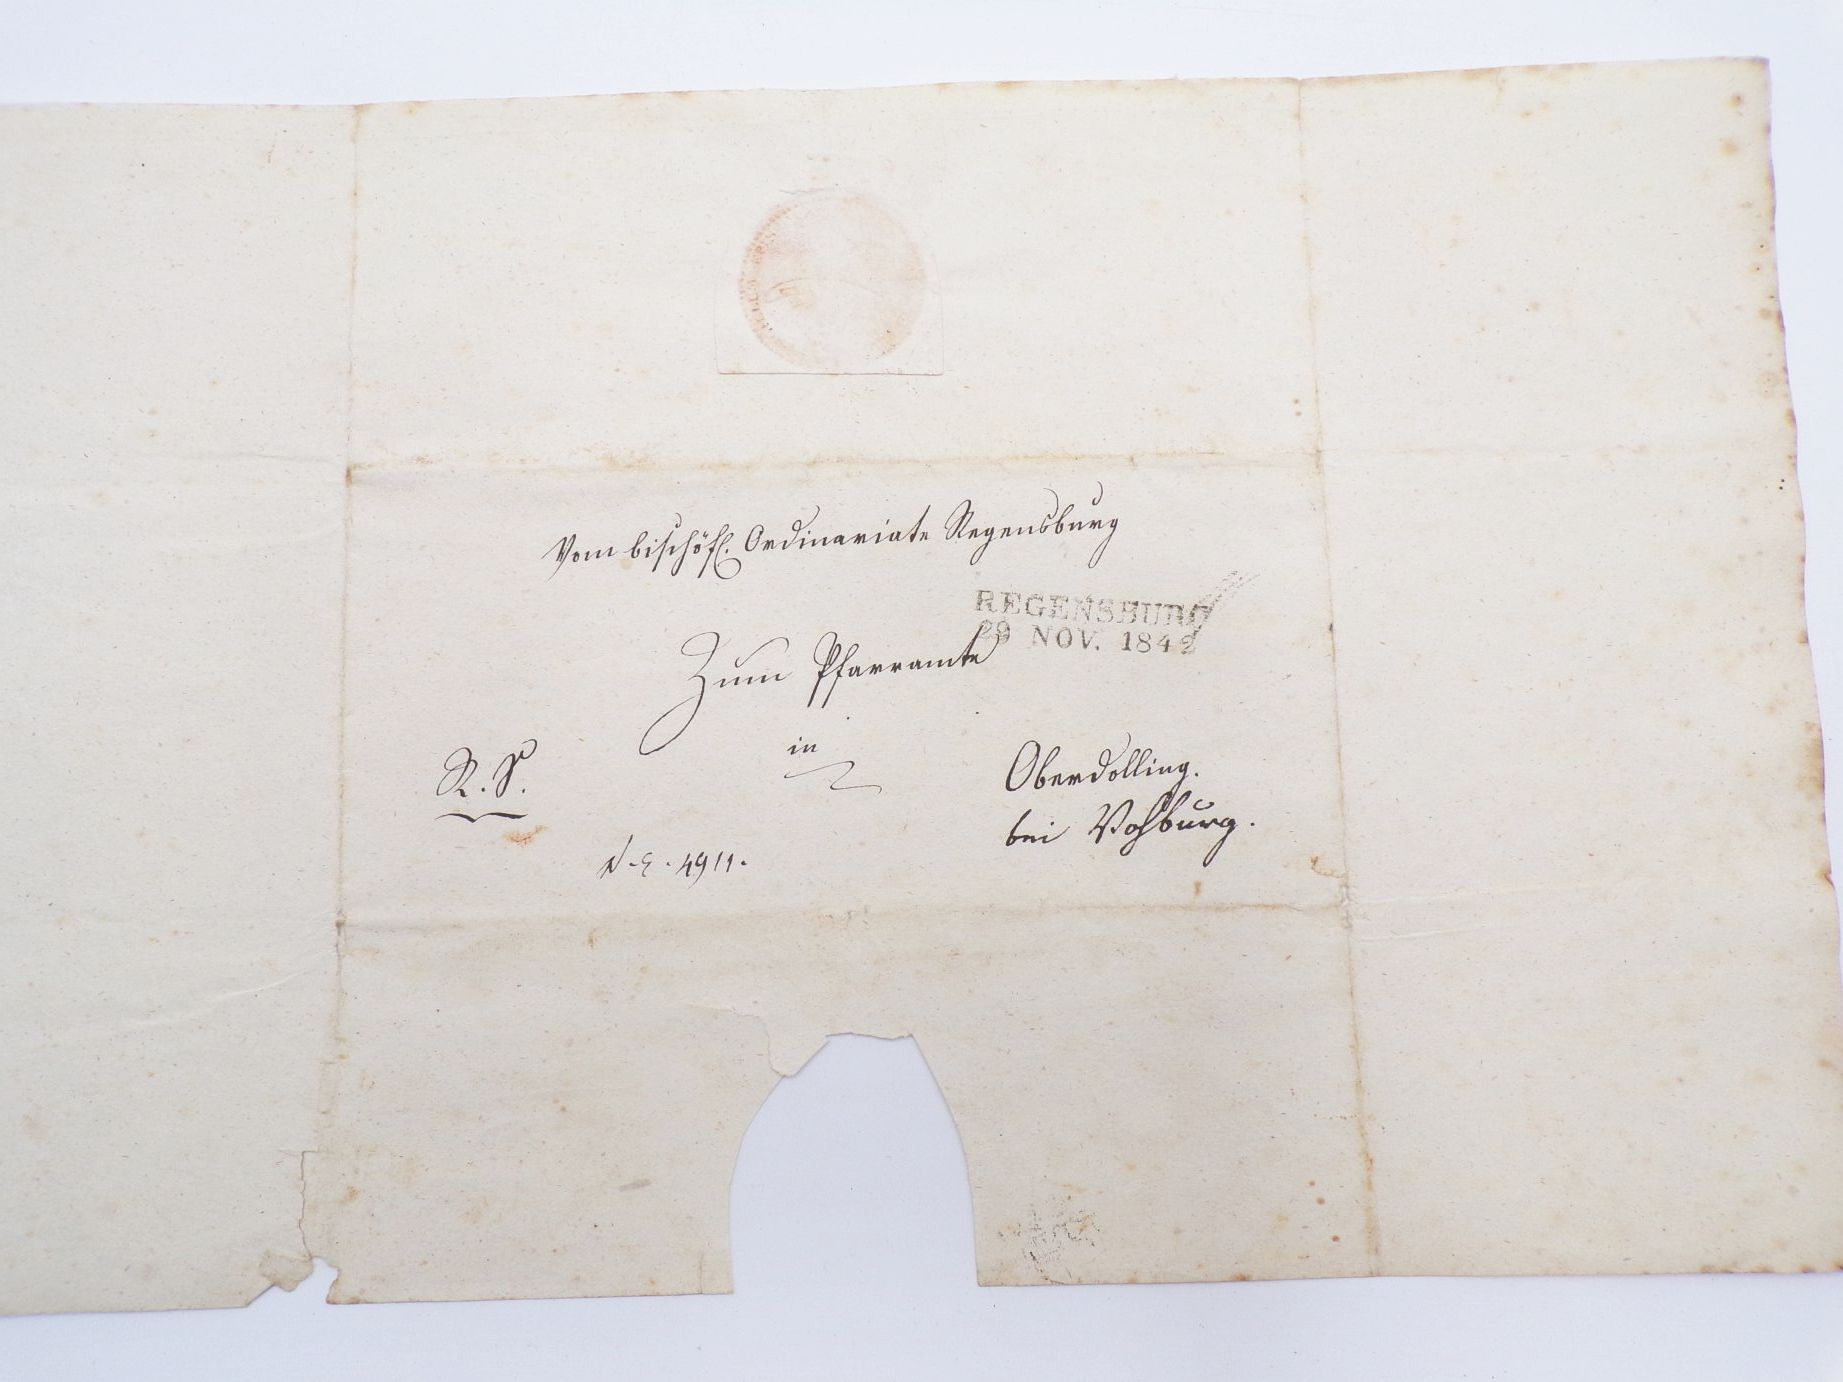 Vom bischöfl. Ordinariate Regensburg
REGENSBURG
29 NOV. 1842
Zum Pfarramte
in
R. S.
Oberdolling.
bei Vohburg.
N. E. 4911.